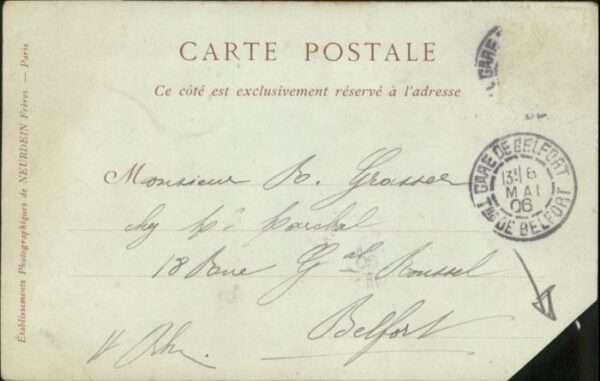 CARTE POSTALE
Ce côté est exclusivement réservé à l'adresse
Établissements Photographiques de NEURDEIN Frères. — Paris
GARE
DE
GARE DE BELFORT
13 6
MAI
06
DE BELFORT
Monsieur R. Grosser
chez Mr
18 Rue Gal Roussel
Belfort